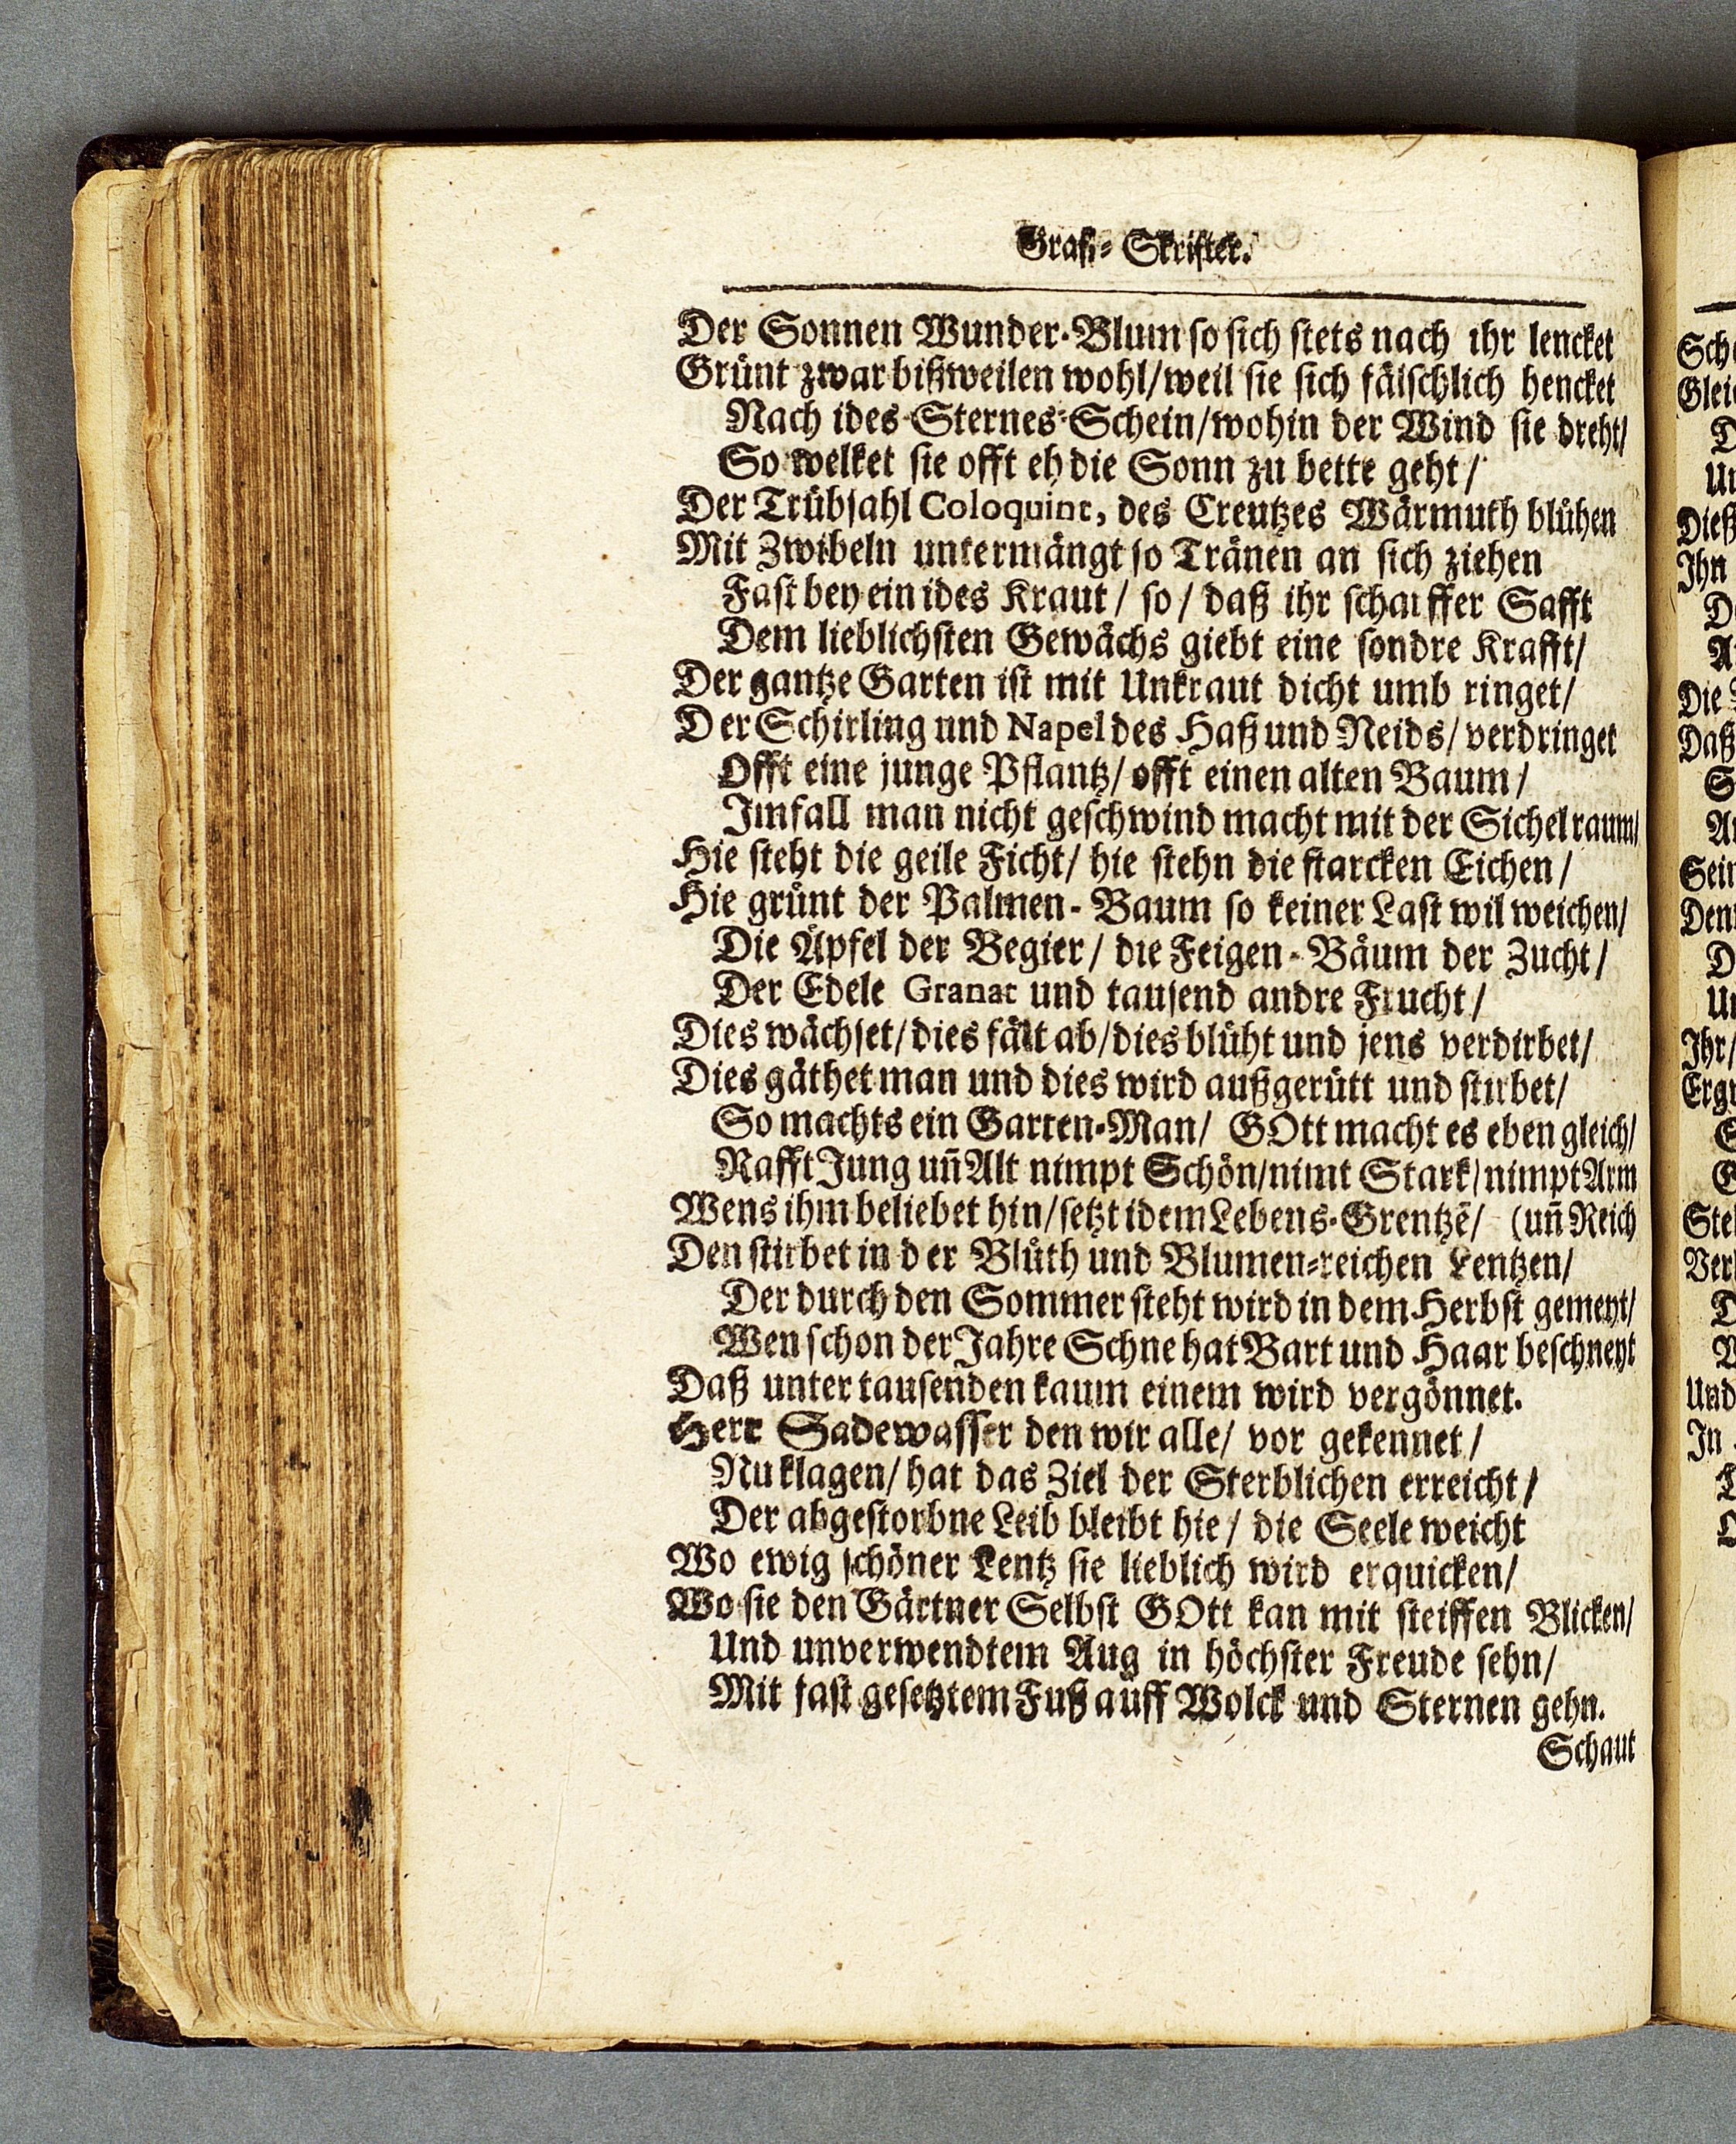 Graff-Skrifter.
Der Sonnen Wunder-Blum so sich stets nach ihr lencket
Grünt zwar bißweilen wohl/weil sie sich fälschlich hencket
Nach ides Sternes-Schein/wohin der Wind sie dreht/
So welket sie offt eh die Sonn zu bette geht/
Der Trübsahl Coloquint, des Creutzes Wärmuth blühen
Mit Zwibeln untermängt so Tränen an sich ziehen
Fast bey ein ides Kraut/ so/ daß ihr scharffer Safft
Dem lieblichsten Gewächs giebt eine sondre Krafft/
Der gantze Garten ist mit Unkraut dicht umb ringet/
Der Schirling und Napel des Haß und Neids/ verdringet
Offt eine junge Pflantz/ offt einen alten Baum/
Imfall man nicht geschwind macht mit der Sichel raum/
Hie steht die geile Ficht/ hie stehn die starcken Eichen/
Hie grünt der Palmen-Baum so keiner Last wil weichen/
Die Äpfel der Begier/ die Feigen-Bäum der Zucht/
Der Edele Granat und tausend andre Frucht/
Dies wächset/dies fält ab/dies blüht und jens verdirbet/
Dies gäthet man und dies wird außgerütt und stirbet/
So machts ein Garten-Man/ GOtt macht es eben gleich/
Rafft Jung uñ Alt nimpt Schön/nimt Stark/nimpt Arm
Wens ihm beliebet hin/setzt idem Lebens-Grentzē/ (uñ Reich
Den stirbet in der Blüth und Blumen-reichen Lentzen/
Der durch den Sommer steht wird in dem Herbst gemeyt/
Wen schon der Jahre Schne hat Bart und Haar beschneyt
Daß unter tausenden kaum einem wird vergönnet.
Herr Sadewasser den wir alle/ vor gekennet/
Nu klagen/ hat das Ziel der Sterblichen erreicht/
Der abgestorbne Leib bleibt hie/ die Seele weicht
Wo ewig schöner Lentz sie lieblich wird erquicken/
Wo sie den Gärtner Selbst GOtt kan mit steiffen Blicken/
Und unverwendtem Aug in höchster Freude sehn/
Mit fast gesetztem Fuß auff Wolck und Sternen gehn.
Schaut